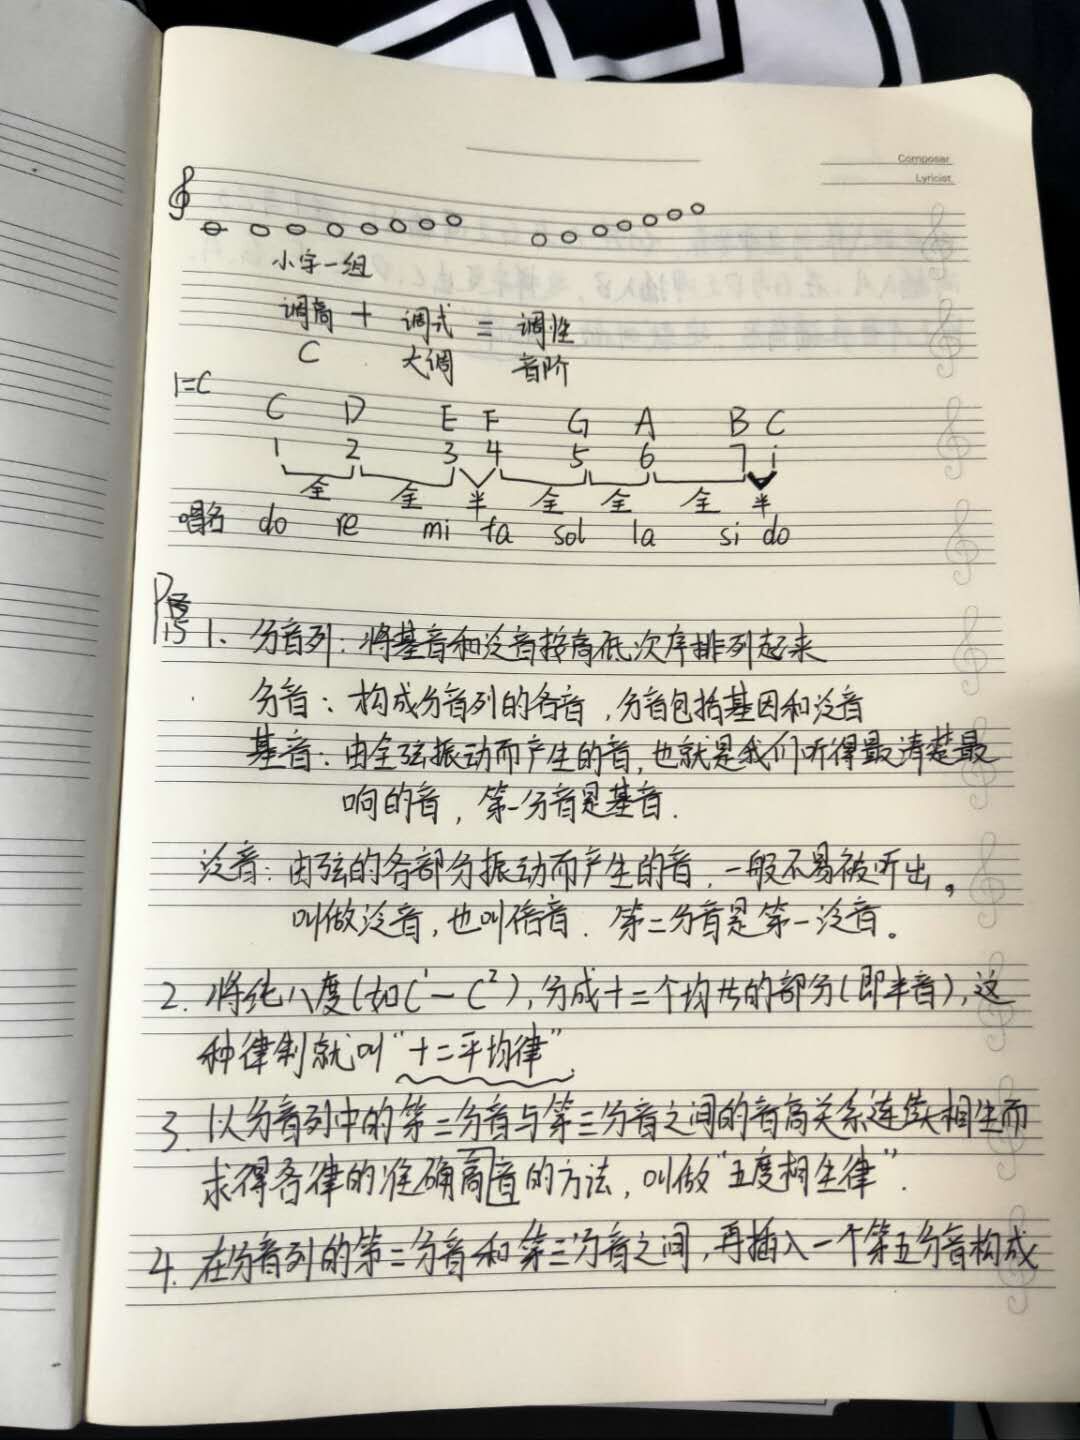 Composer
Lyricist
小字一组
调高 + 调式 = 调性
C 大调 音阶
1=C
C D E F G A B C
1 2 3 4 5 6 7 i
全 全 半 全 全 全 半
唱名 do re mi fa sol la si do
P15 1. 分音列：将基音和泛音按高低次序排列起来
分音：构成分音列的各音，分音包括基因和泛音
基音：由全弦振动而产生的音，也就是我们听得最清楚最
响的音，第一分音是基音.
泛音：由弦的各部分振动而产生的音，一般不易被听出。
叫做泛音，也叫倍音. 第二分音是第一泛音。
2. 将纯八度(如C¹—C²)，分成十二个均等的部分(即半音)，这
种律制就叫“十二平均律”
3. 以分音列中的第二分音与第三分音之间的音高关系连续相生而
求得各律的准确高音的方法，叫做“五度相生律”.
4. 在分音列的第二分音和第三分音之间，再插入一个第五分音构成